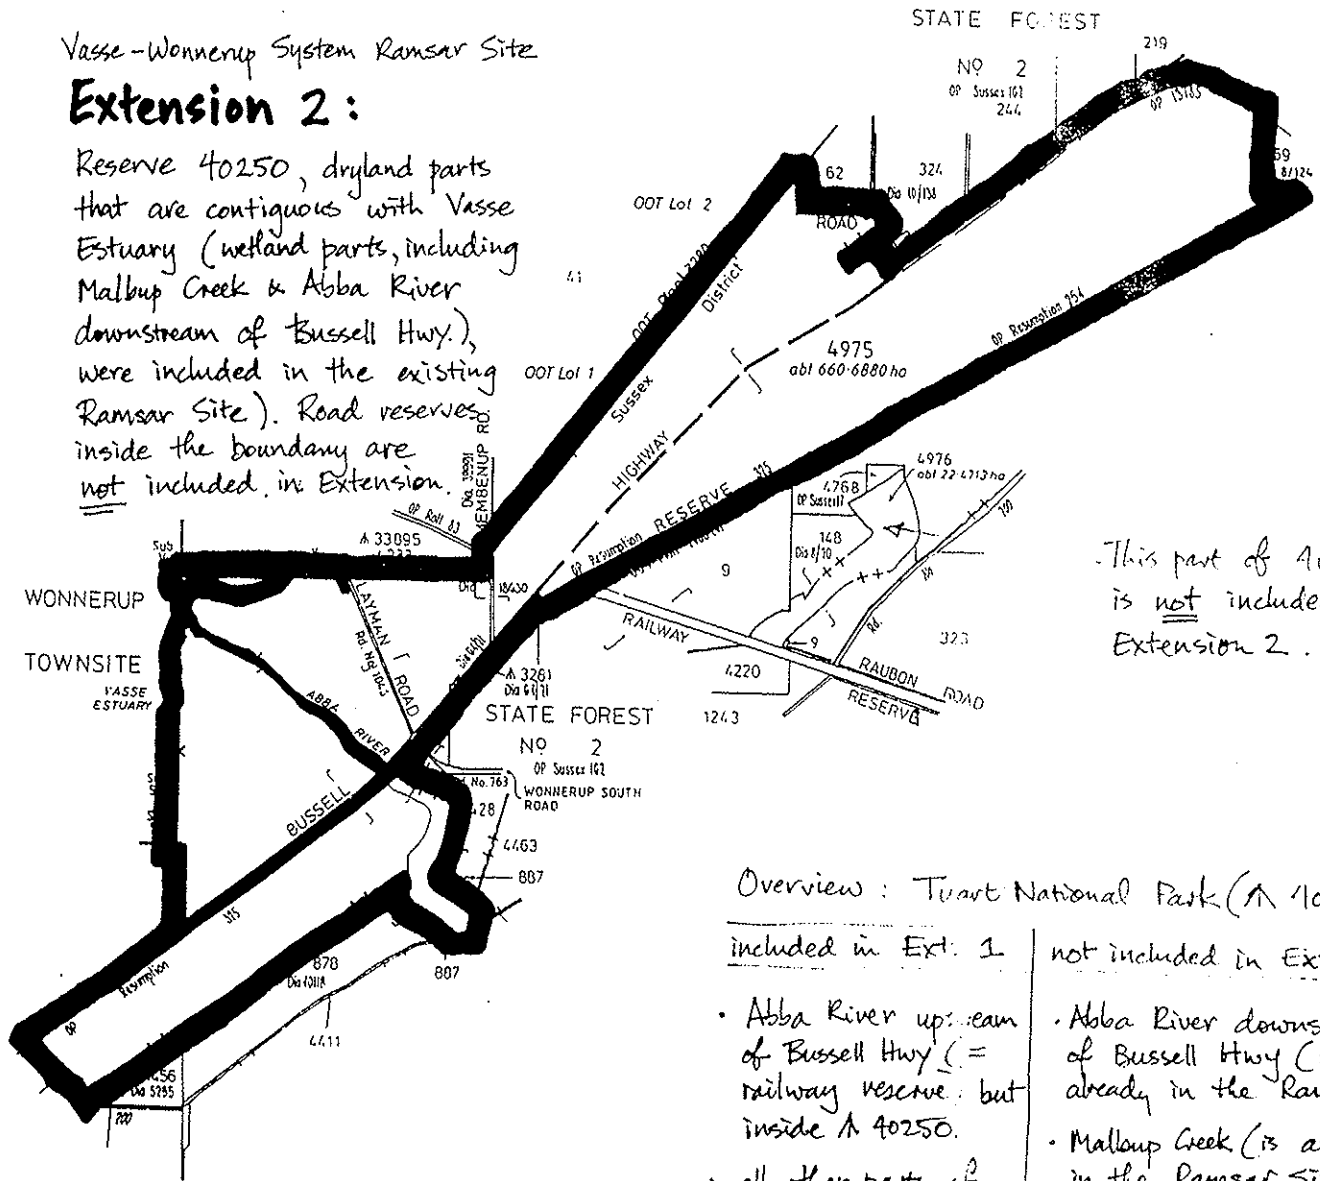 Vasse-Wonnerup System Ramsar Site
Extension 2:
Reserve 40250, dryland parts
that are contiguous with Vasse
Estuary (wetland parts, including
Malbup Creek & Abba River
downstream of Bussell Hwy.),
were included in the existing
Ramsar Site). Road reserves
inside the boundary are
not included in Extension.
STATE FOREST
Nº 2
OP Sussex 162
244
219
62
324
Dia 10/138
ROAD
8/124
OOT Lot 2
41
OOT Lot 1
District
Sussex
HIGHWAY
4975
abt 660·6880 ha
OP Resumption 254
OP Resumption
RESERVE
375
4976
abt 22·4713 ha
4768
OP Sussex
148
Dia 8/70
9
9
Rd.
323
RAILWAY
4220
RAUBON ROAD
RESERVE
1243
OP Roll 83
33095
18430
WONNERUP
TOWNSITE
VASSE
ESTUARY
LAYMAN ROAD
Rd. No. 1043
ABBA RIVER
3261
Dia 61/71
STATE FOREST
Nº 2
OP Sussex 162
No. 763
WONNERUP SOUTH
ROAD
428
4463
887
BUSSELL
315
OP Resumption
878
Dia 10118
887
4411
Dia 5295
200
This part of
is not
Extension 2.
Overview: Tuart National Park (
included in Ext. 1
not included in
· Abba River
of Bussell Hwy (=
railway reserve but
inside 40250.
· Abba River
of Bussell Hwy (
already in the
· Malbup Creek (is
in the Ramsar
all other parts of